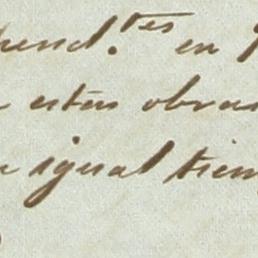 hend.tes en
estas obras
igual tiem